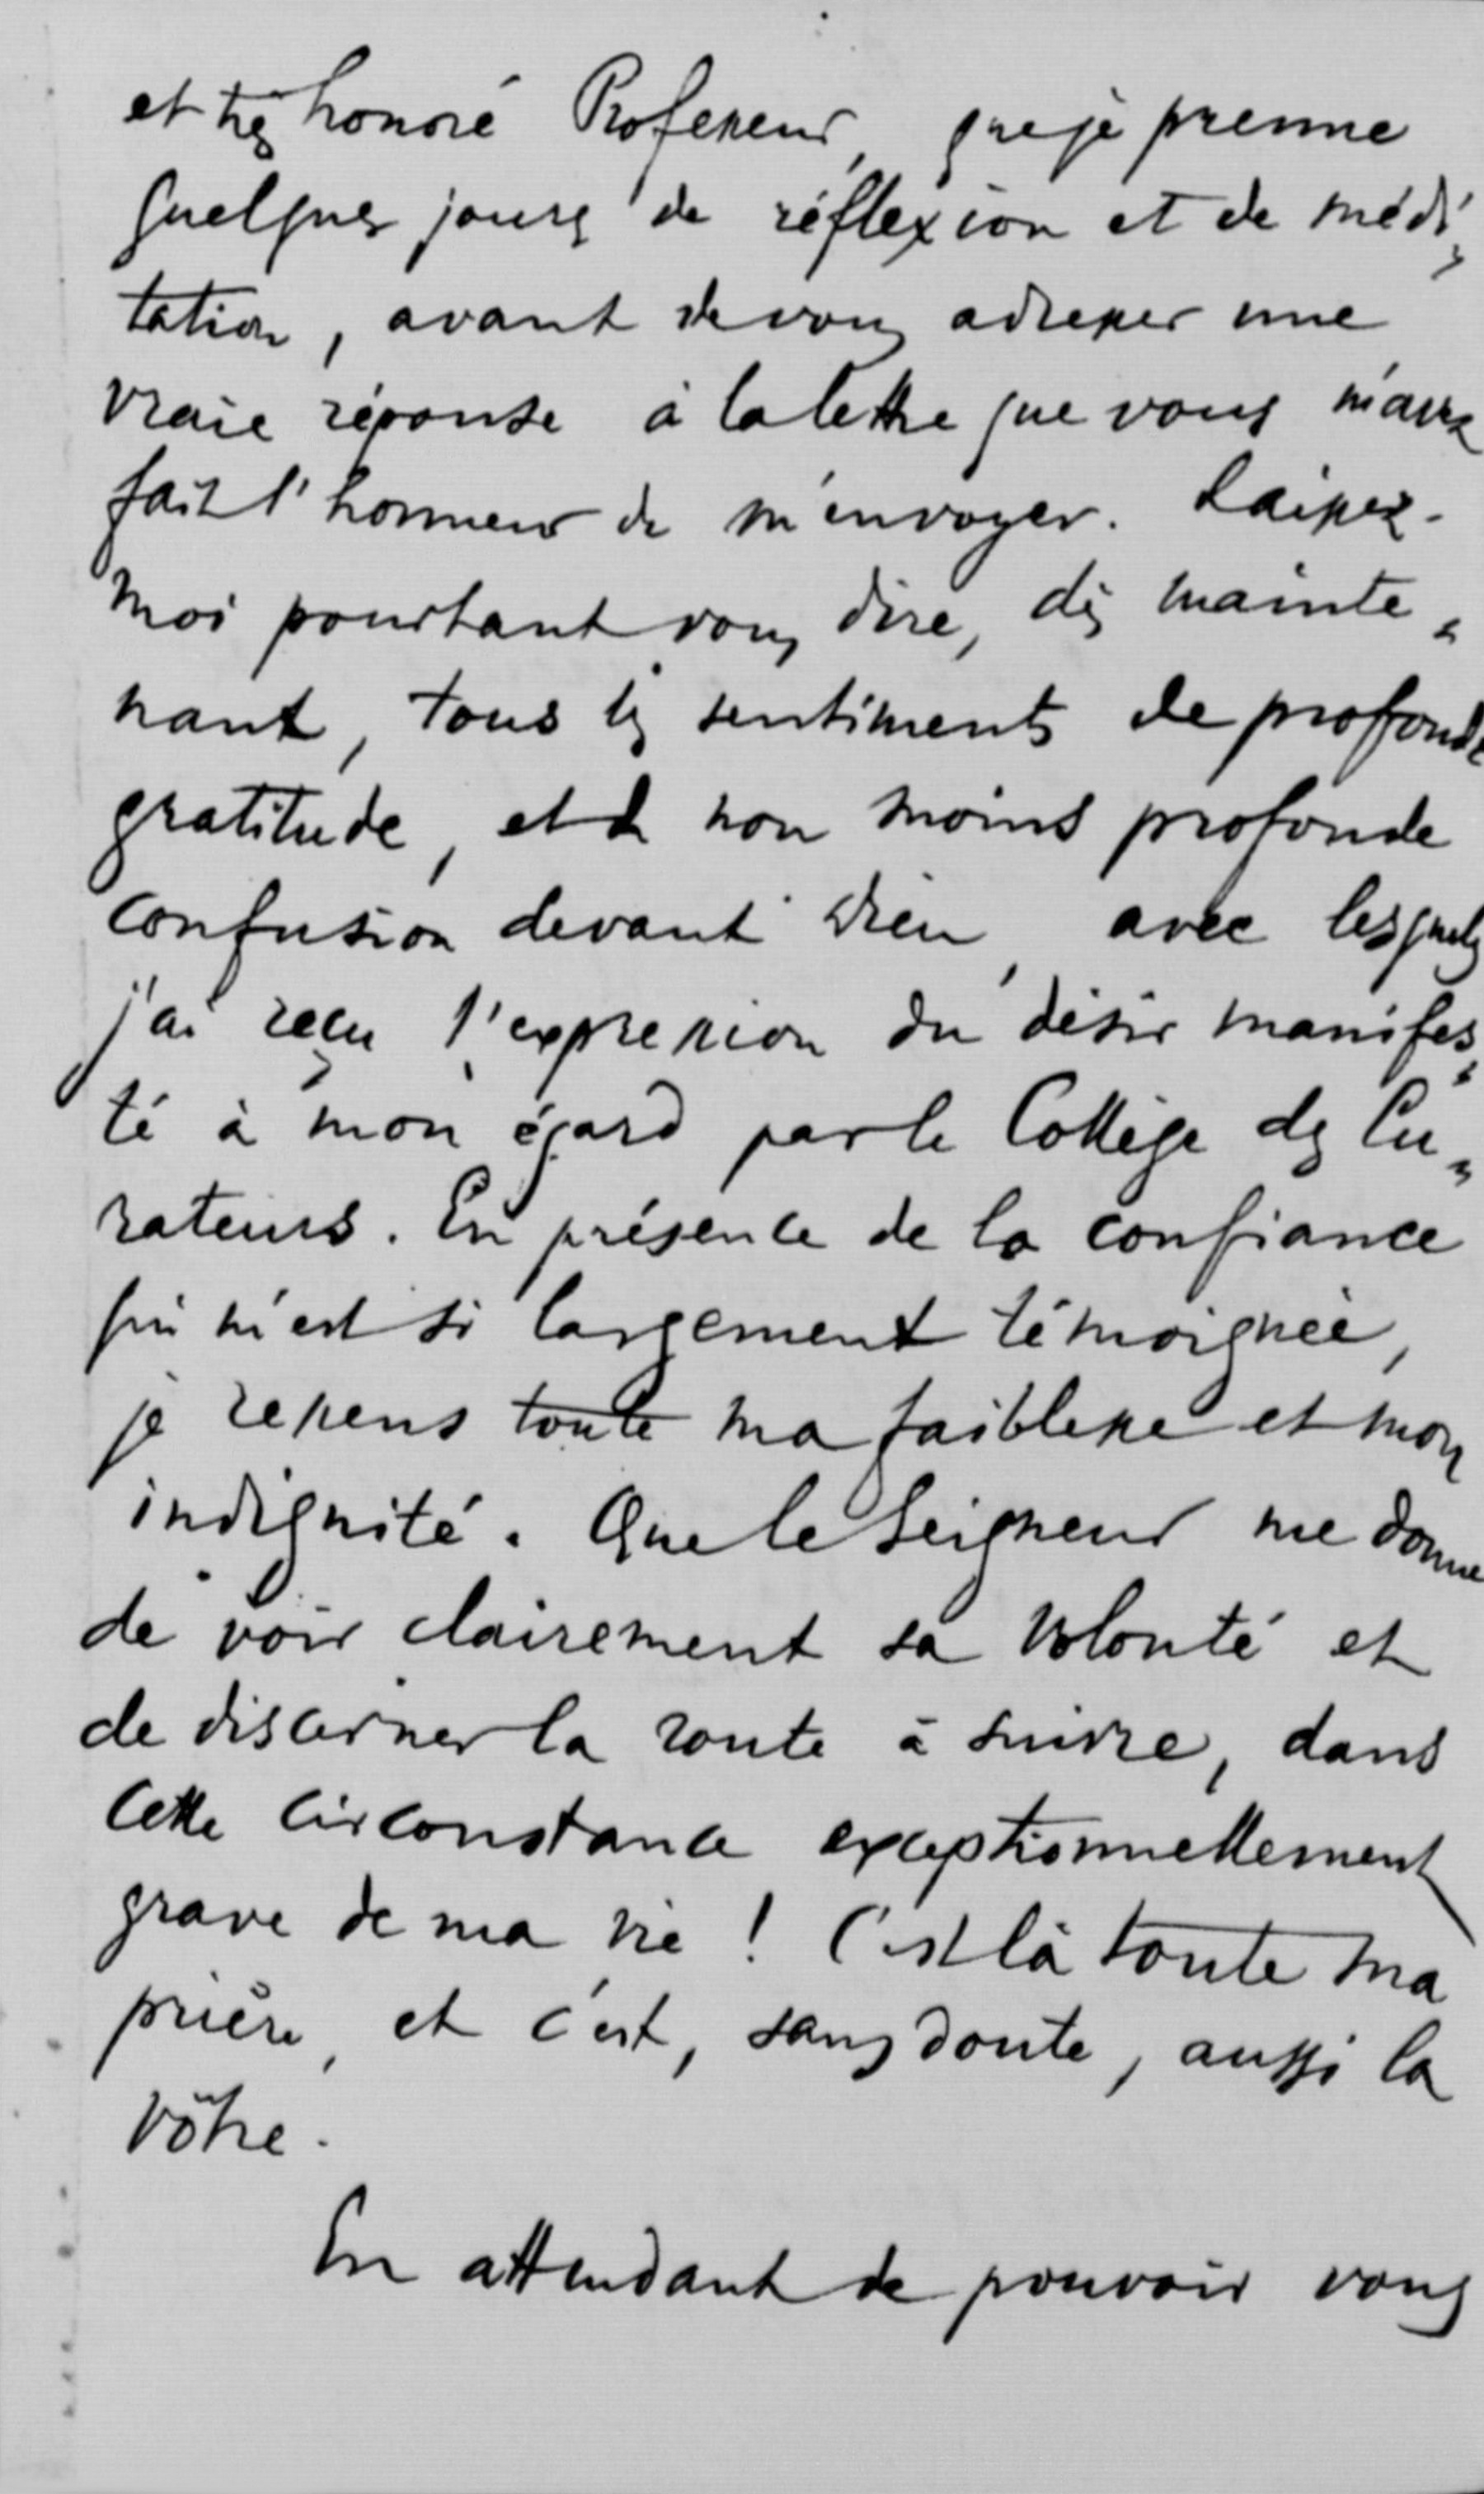 et très honoré Professeur, que je prenne
quelques jours de réflexion et de médi-
tation, avant de vous adresser une
vraie réponse à la lettre que vous m'avez
fait l'honneur de m'envoyer. Laissez-
moi pourtant vous dire, dès mainte-
nant, tous les sentiments de profonde
gratitude, et de non moins profonde
confusion devant Dieu, avec lesquels
j'ai reçu l'expression du désir manifes-
té à mon égard par le Collège des Cu-
rateurs. En présence de la confiance
qui m'est si largement témoignée,
je ressens toute ma faiblesse et mon
indignité. Que le Seigneur me donne
de voir clairement sa volonté et
de discerner la route à suivre, dans
cette circonstance exceptionnellement
grave de ma vie ! C'est là toute ma
prière, et c'est, sans doute, aussi la
vôtre.
En attendant de pouvoir vous